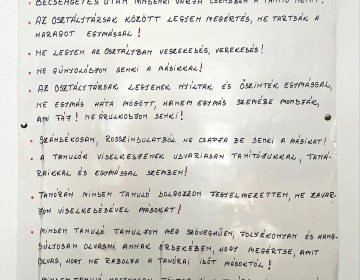 BECSENGETÉS UTÁN MINDENKI VÁRJA CSENDBEN A TANÍTÓ NÉNIT!
AZ OSZTÁLYTÁRSAK KÖZÖTT LEGYEN MEGÉRTÉS, NE TARTSÁK A
HARAGOT EGYMÁSSAL!
NE LEGYEN AZ OSZTÁLYBAN VESZEKEDÉS, VEREKEDÉS!
NE GÚNYOLÓDJON SENKI A MÁSIKKAL!
AZ OSZTÁLYTÁRSAK LEGYENEK NYÍLTAK ÉS ŐSZINTÉK EGYMÁSSAL,
NE EGYMÁS HÁTA MÖGÖTT, HANEM EGYMÁS SZEMÉBE MONDJÁK,
AMI FÁJ! NE ÁRULKODJON SENKI!
SZÁNDÉKOSAN, ROSSZINDULATBÓL NE CSAPJA BE SENKI A MÁSIKAT!
A TANULÓK VISELKEDJENEK UDVARIASAN TANÍTÓJUKKAL, TANÁ-
RAIKKAL ÉS EGYMÁSSAL SZEMBEN!
TANÓRÁN MINDEN TANULÓ DOLGOZZON FEGYELMEZETTEN, NE ZAVAR-
JON VISELKEDÉSÉVEL MÁSOKAT!
MINDEN TANULÓ TANULJON MEG SZÖVEGHŰEN, FOLYÉKONYAN ÉS HANG-
SÚLYOSAN OLVASNI ANNAK ÉRDEKÉBEN, HOGY MEGÉRTSE, AMIT
OLVAS, HOGY NE RABOLJA A TANÓRAI IDŐT MÁSOKTÓL!
MINDEN TANULÓ